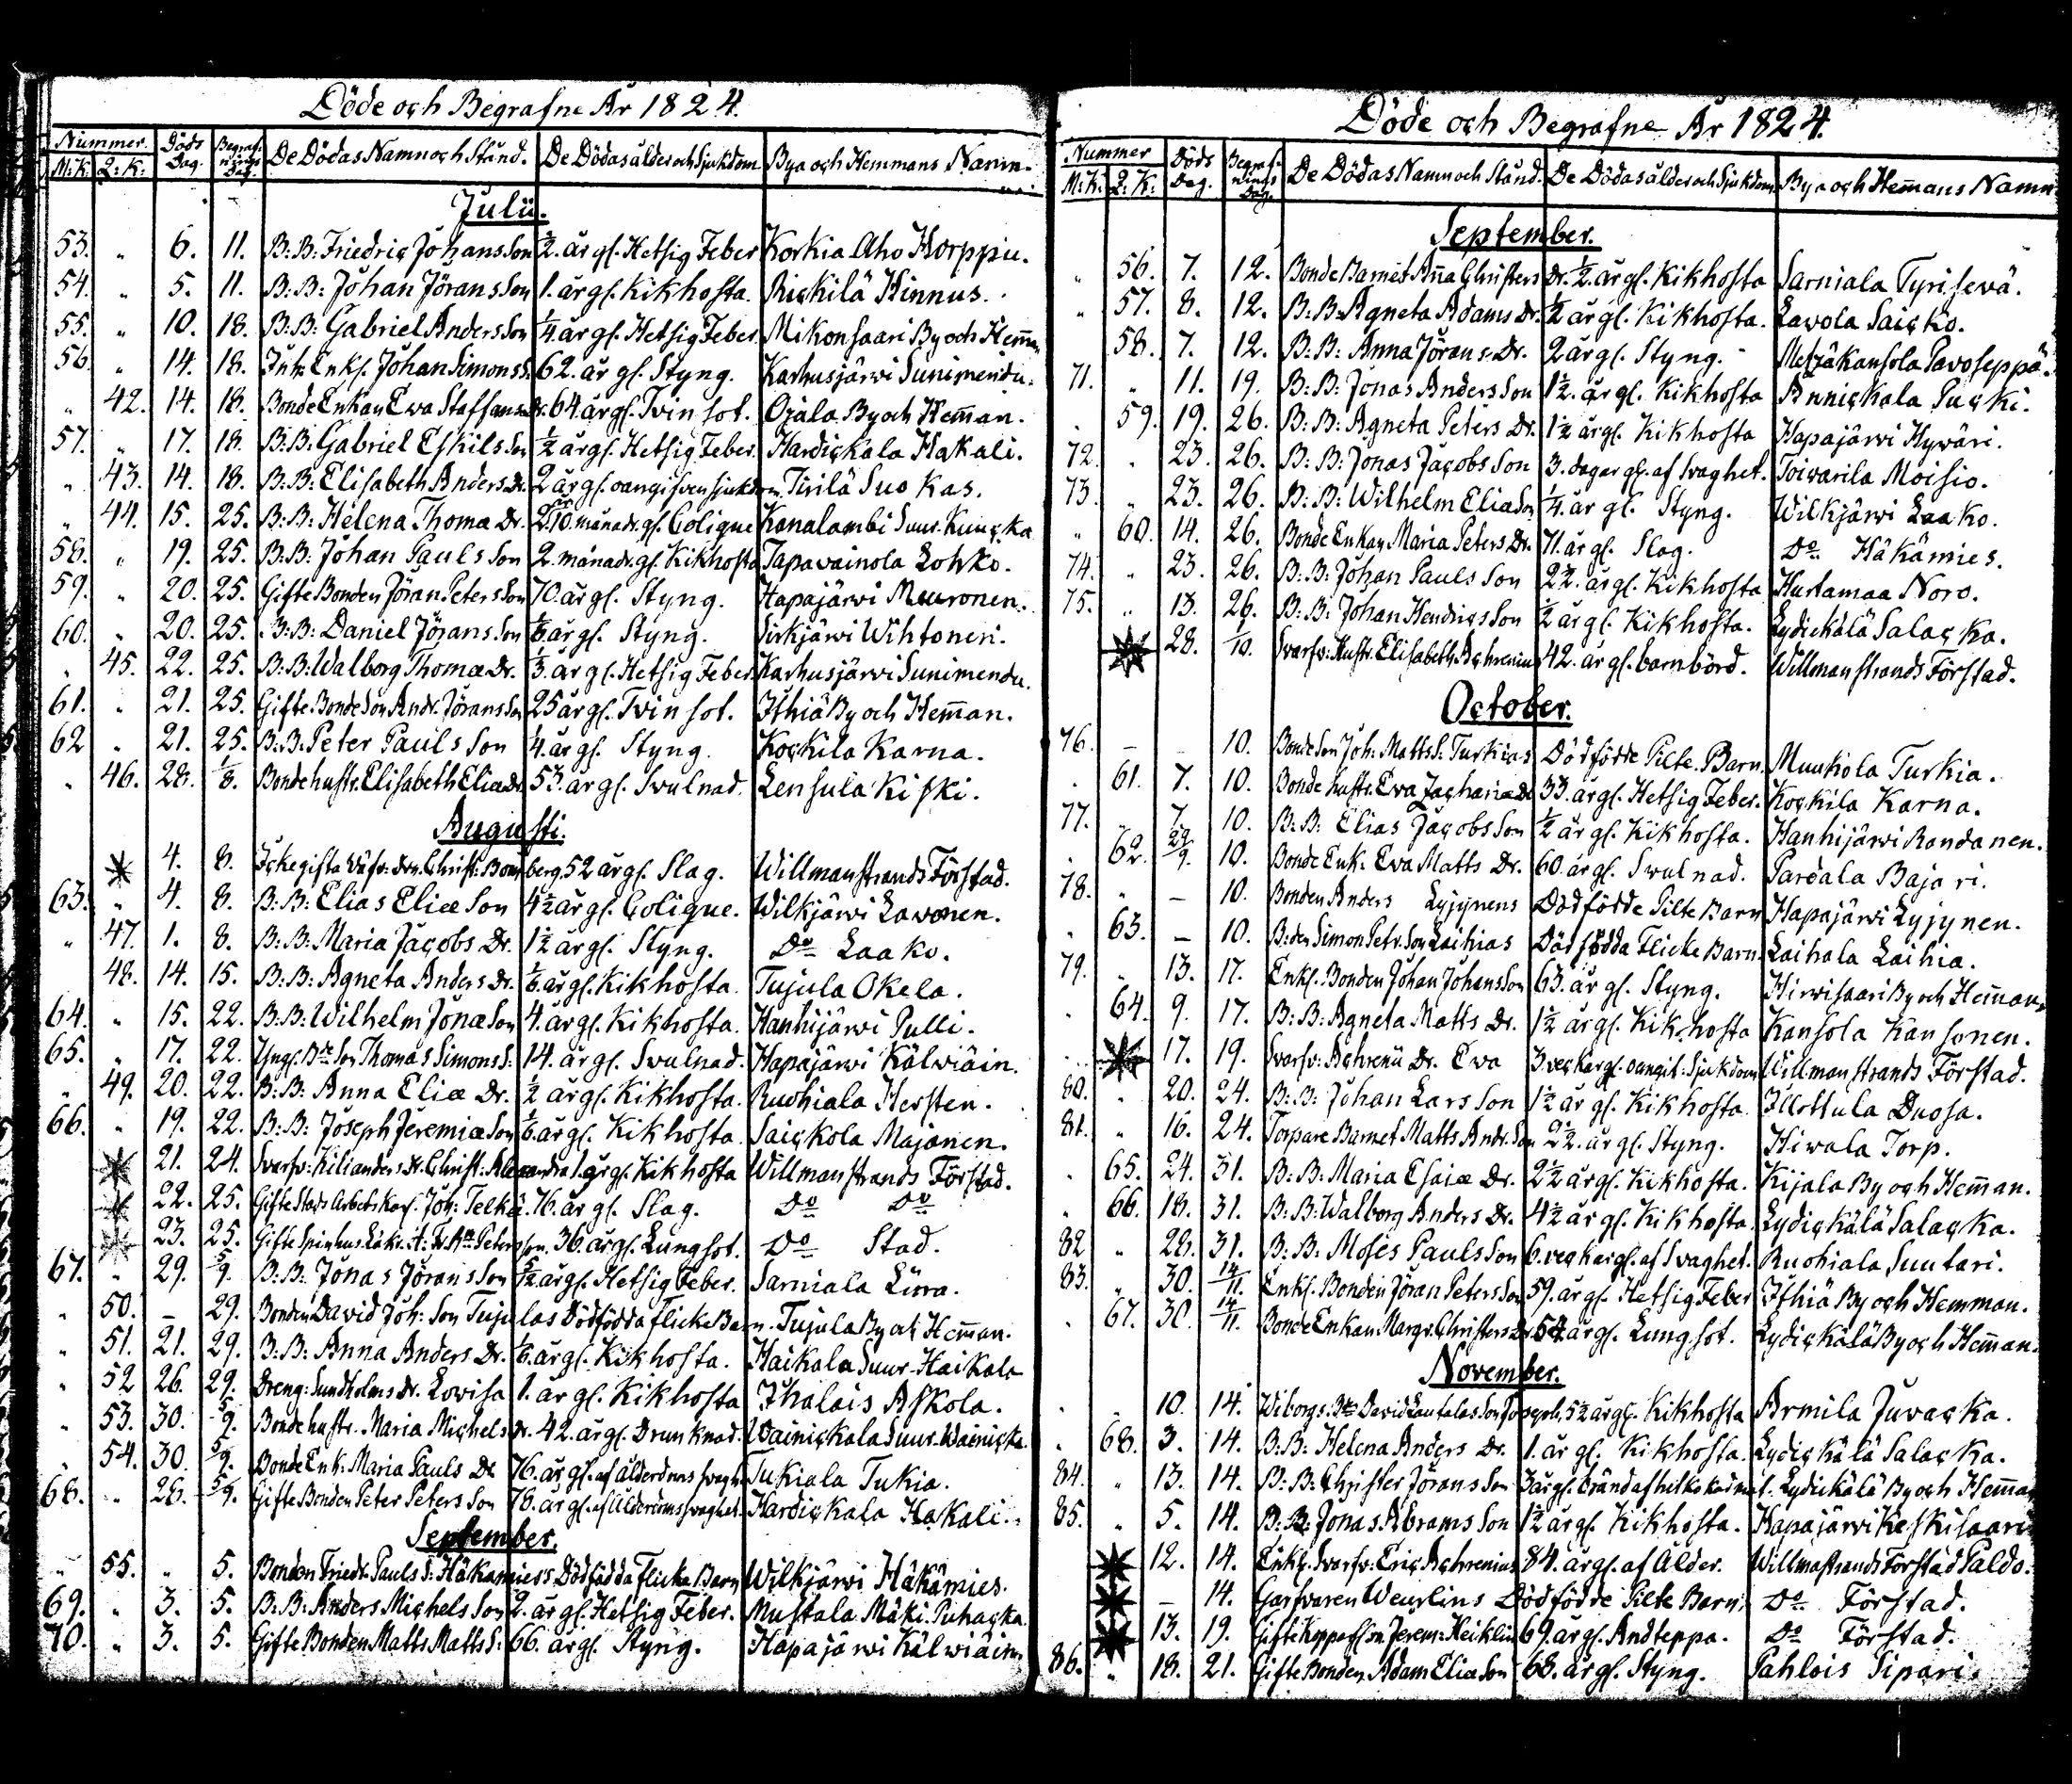 Döde och Begrafne År 1824.
Nummer. Döds Dag. Begrafnings Dag. De Dödas Namn och Stånd. De Dödas ålder och Sjukdom Bya och Hemmans Namn.
M:K. Q:K:
Julii.
53. „ 6. 11. B:B: Friedric Johans Son ½. år gl. Hetsig Feber Korkia Aho Horppu.
54. „ 5. 11. B:B: Johan Jörans Son 1. år gl. Kikhosta. Rickilä Hinnus.
55. „ 10. 18. B:B: Gabriel Anders Son ¼. år gl. Hetsig Feber. Mikonsaari By och Heman
56. „ 14. 18. Inh: Enkl. Johan Simons S. 62. år gl. Styng. Karhusjärwi Sunimendu.
„ 42. 14. 18. Bonde Enkan Ewa Staffans Dr. 64. år gl. Twinsot. Ojala By och Heman.
57. „ 17. 18. B:B: Gabriel Eskils Son ½ år gl. Hetsig Feber. Hardickala Hakali.
„ 43. 14. 18. B:B: Elisabeth Anders Dr. 2 år gl. oangifven sjukdom. Tirilä Suokas.
„ 44. 15. 25. B:B: Helena Thomæ Dr. 2. år 10. månadr. gl. Colique Kanalambi Suur-Kuucka
58. „ 19. 25. B:B: Johan Pauls Son 2. månadr. gl. Kikhosta Tapavainola Lohko.
59. „ 20. 25. Gifte Bonden Jöran Peters Son 70. år gl. Styng. Hapajärwi Muuronen.
60. „ 20. 25. B:B: Daniel Jörans Son ⅙ år gl. Styng. Sirkjärwi Wihtonen.
„ 45. 22. 25. B:B: Walborg Thomæ Dr. ⅓ år gl. Hetsig Feber. Karhusjärwi Sunimendu.
61. „ 21. 25. Gifte Bonde Son Andr. Jörans Son 25 år gl. Twinsot. Ithiä By och Heman.
62 „ 21. 25. B:B: Peter Pauls Son ¼. år gl. Styng. Kockila Karna.
„ 46. 28. 1/8. Bonde hustr. Elisabeth Eliæ Dr. 53. år gl. Swulnad. Lensula Kiski.
Augusti.
4. 8. Icke gifta Christ: 52 år gl. Slag. Willmanstrands Förstad.
63. „ 4. 8. B:B: Elias Eliæ Son 4½ år gl. Colique. Wilkjärwi Lavonen.
„ 47. 1. 8. B:B: Maria Jacobs Dr. 1½ år gl. Styng. Do Laako.
48. 14. 15. B:B: Agneta Anders Dr. ⅙. år gl. Kikhosta. Tujula Okela.
64. „ 15. 22. B:B: Wilhelm Jonæ Son 4. år gl. Kikhosta. Hanhijärwi Pulli.
65. „ 17. 22. Yngl. Bde Son Thomas Simons S: 14. år gl. Swulnad. Hapajärwi Kälwiäin.
„ 49. 20. 22. B:B: Anna Eliæ Dr. ½ år gl. Kikhosta. Ruohiala Hersten.
66. „ 19. 22. B:B: Joseph Jeremiæ Son ⅙. år gl. Kikhosta. Saickola Majanen.
21. 24. Svarfv: Kilianders Dr. Christ: Alexandra 1. år gl. Kikhosta Willmanstrands Förstad.
22. 25. Gifte Stads Arbets Karl. Joh: Telkä. 76. år gl. Slag. Do Do
23. 25. Gifte Peterson. 36. år gl. Lungsot. Do Stad.
67. „ 29. 5/9. B:B: Jonas Jörans Son 5½. år gl. Hetsig Feber. Sarniala Liira.
„ 50. – 29. Bonden David Joh: Son Tujulas Dödfödda Flicke Barn. Tujula By och Heman.
„ 51. 21. 29. B:B: Anna Anders Dr. ⅙. år gl. Kikhosta. Haikala Suur-Haikala
„ 52 26. 29. Dreng: Sundholms Dr. Lowisa 1. år gl. Kikhosta Ihalais Askola.
„ 53. 30. 5/9. Bonde hustr. Maria Michels Dr. 42. år gl. Drunknad. Wainickala Suur-Wainicka
„ 54. 30. 5/9. Bonde Enk: Maria Pauls Dr 76. år gl. af ålderdoms svaghet Tukiala Tukia.
68. „ 28. 5/9. Gifte Bonden Peter Peters Son 76. år gl. af ålderdoms svaghet. Hardickala Hakali.
September.
„ 55. „ 5. Bonden Friedr. Pauls S: Häkämies's Dödfödda Flicke Barn Wilkjärwi Häkämies.
69. „ 3. 5. B:B: Anders Michels Son 2. år gl. Hetsig Feber. Mustala Mäki-Puhacka
70. „ 3. 5. Gifte Bonden Matts Matts S: 66. år gl. Styng. Hapajärwi Kälwiäin
Döde och Begrafne År 1824.
Nummer Döds Dag. Begrafnings Dag. De Dödas Namn och Stånd. De Dödas ålder och Sjukdom Bya och Hemans Namn
M:K. Q:K:
September.
„ 56. 7. 12. Bonde Barnet Anna Christers Dr. ½. år gl. Kikhosta Sarniala Tyrisevä.
„ 57. 8. 12. B:B: Agneta Adams Dr. ½ år gl. Kikhosta. Lavola Saicko.
58. 7. 12. B:B: Anna Jörans Dr. 2 år gl. Styng. Metzäkansola Pavoseppä.
71. „ 11. 19. B:B: Jonas Anders Son 1½. år gl. Kikhosta Annickala Pucki.
59. 19. 26. B:B: Agneta Peters Dr. 1½ år gl. Kikhosta Hapajärwi Hywäri.
72. „ 23. 26. B:B: Jonas Jacobs Son 3. dagar gl. af Svaghet. Toiwarila Moisio.
73. „ 23. 26. B:B: Wilhelm Eliæ Son ¼. år gl. Styng. Wilkjärwi Laako.
„ 60. 14. 26. Bonde Enkan Maria Peters Dr. 71. år gl. Slag. Do Häkämies.
74. „ 23. 26. B:B: Johan Pauls Son 2½. år gl. Kikhosta Hurtamaa Noro.
75. „ 13. 26. B:B: Johan Hendrics Son ½ år gl. Kikhosta. Lydickälä Salacka.
28. 1/10. Svarfv: Hustr. Elisabeth Achrenius 42. år gl. barnbörd. Willmanstrands Förstad.
October.
76. – – 10. Bonde Son Joh: Matts S. Turkias Dödfödde Pilte Barn. Muukola Turkia.
61. 7. 10. Bonde hustr. Ewa Zachariæ Dr 33. år gl. Hetsig Feber. Kockila Karna.
77. „ 7. 10. B:B: Elias Jacobs Son ½ år gl. Kikhosta. Hanhijärwi Randanen.
62. 29/9. 10. Bonde Enk: Ewa Matts Dr. 60. år gl. Swulnad. Pardala Bajari.
78. „ – 10. Bonden Anders Lyjynens Dödfödde Pilte Barn Hapajärwi Lyjynen.
63. – 10. B:den Simon Petr. Son Laihias Dödfödda Flicke Barn. Laihala Laihia.
79. „ 13. 17. Enkl. Bonden Johan Johans Son 63. år gl. Styng. Hirwisaari By och Heman.
64. 9. 17. B:B: Agneta Matts Dr. 1½ år gl. Kikhosta Kansola Kansonen.
17. 19. Svarfv: Achrenii Dr. Ewa 3. veckar gl. oangif: Sjukdom Willmanstrands Förstad.
80. „ 20. 24. B:B: Johan Lars Son 1½ år gl. Kikhosta. Illottula Duosa.
81. „ 16. 24. Torpare Barnet Matts Andr. Son 2½. år gl. Styng. Hiwala Torp.
65. 24. 31. B:B: Maria Esaiæ Dr. 2½ år gl. Kikhosta. Kijala By och Heman.
„ 66. 18. 31. B:B: Walborg Anders Dr. 4½ år gl. Kikhosta. Lydickälä Salacka.
82 „ 28. 31. B:B: Moses Pauls Son 6. veckar gl. af Svaghet. Ruohiala Suutari.
83. „ 30. 14/11. Enkl. Bonden Jöran Peters Son 59. år gl. Hetsig Feber Ithiä By och Hemman.
67. 30. 14/11. Bonde Enkan Margr. Christers Dr 54. år gl. Lungsot. Lydickälä By och Heman.
November.
10. 14. Wiborgs: Bde David Lautalas Son Joseph. 5½ år gl. Kikhosta Armila Juvacka.
68. 3. 14. B:B: Helena Anders Dr. 1. år gl. Kikhosta. Lydickälä Salacka.
84. „ 13. 14. B:B: Christer Jörans Son 3 år gl. Lydickälä By och Heman
85. „ 5. 14. B:B: Jonas Abrams Son 1½ år gl. Kikhosta. Hapajärwi Keskisaari
12. 14. Enkl. Svarfv: Eric Achrenius 84. år gl. af Ålder. Willmanstrands Förstad Paldo.
– 14. Garfvaren Weurlins Dödfödde Pilte Barn. Do Förstad.
13. 19. Gifte Jerem: Heiklin 69. år gl. Andteppa. Do Förstad.
86. „ 18. 21. Gifte Bonden Adam Eliæ Son 68. år gl. Styng. Pahlois Sipari.